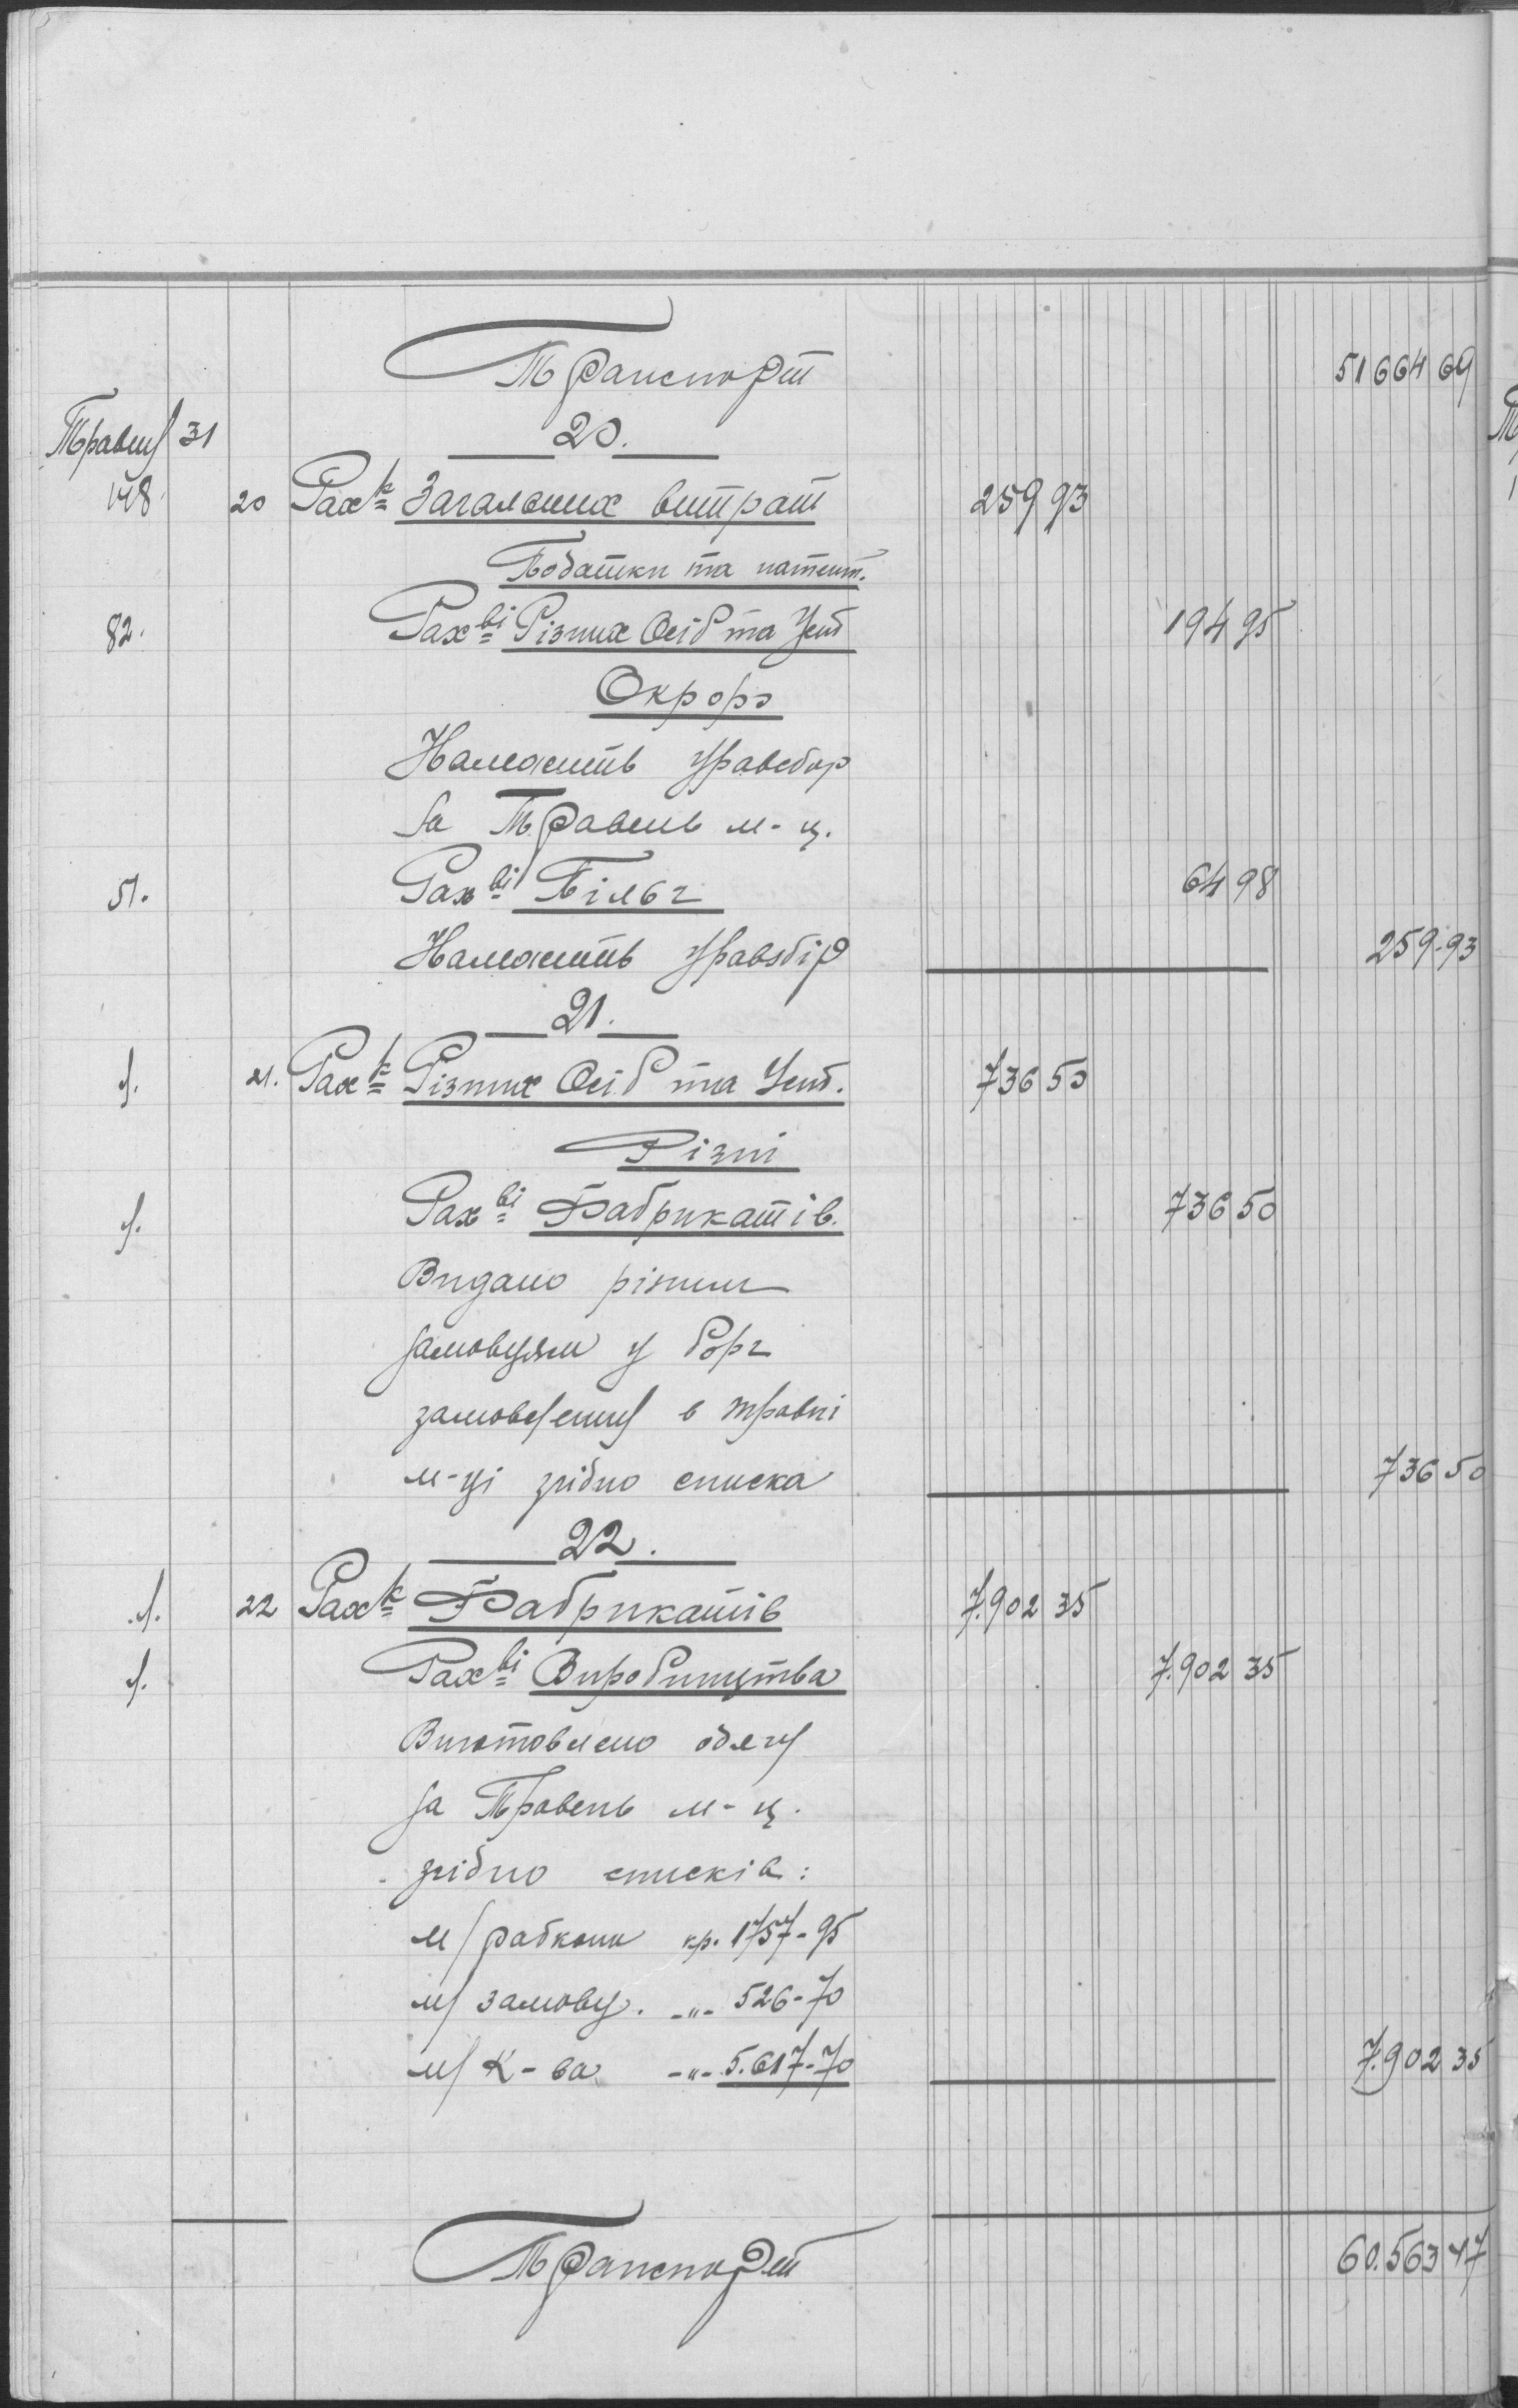 Транспорт 51664 69
Травня 31
20.
148. 20 Рах-к Загальних витрат 259 93
Податки та патент.
82. Рах-ві Різних Осіб та Уст 194 95
Окрфо
Належить
за Травень м-ц.
51. Рах-ві Пільг 64 98
Належить 259-93
21.
21. Рах-к Різних Осіб та Уст. 736 50
Різні
Рах-ві Фабрикатів. 736 50
Видано різним
замовцям у борг
замовлення в травні
м-ці згідно списка 736 50
22.
22 Рах-к Фабрикатів 7.902 35
Рах-ві Виробництва 7.902 35
Виготовлено одягу
за Травень м-ц.
згідно списків:
м/рабкопи кр. 1757-95
м/ замовц. -"- 526-70
м/ К-ва -"- 5.617-70 7.902 35
Транспорт 60.563 47